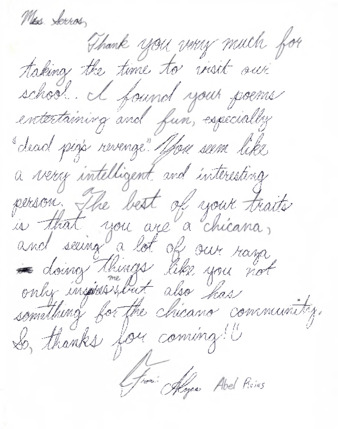 Mss. Serros,
Thank you very much for
taking the time to visit our
school. I found your poems
entertaining and fun, especially
"dead pig's revenge". You seem like
a very intelligent and interesting
person. The best of your traits
is that you are a chicana,
and seeing a lot of our raza
doing things like you not
only inspires me but also has
something for the chicano community.
So, thanks for coming!!
From: Abel